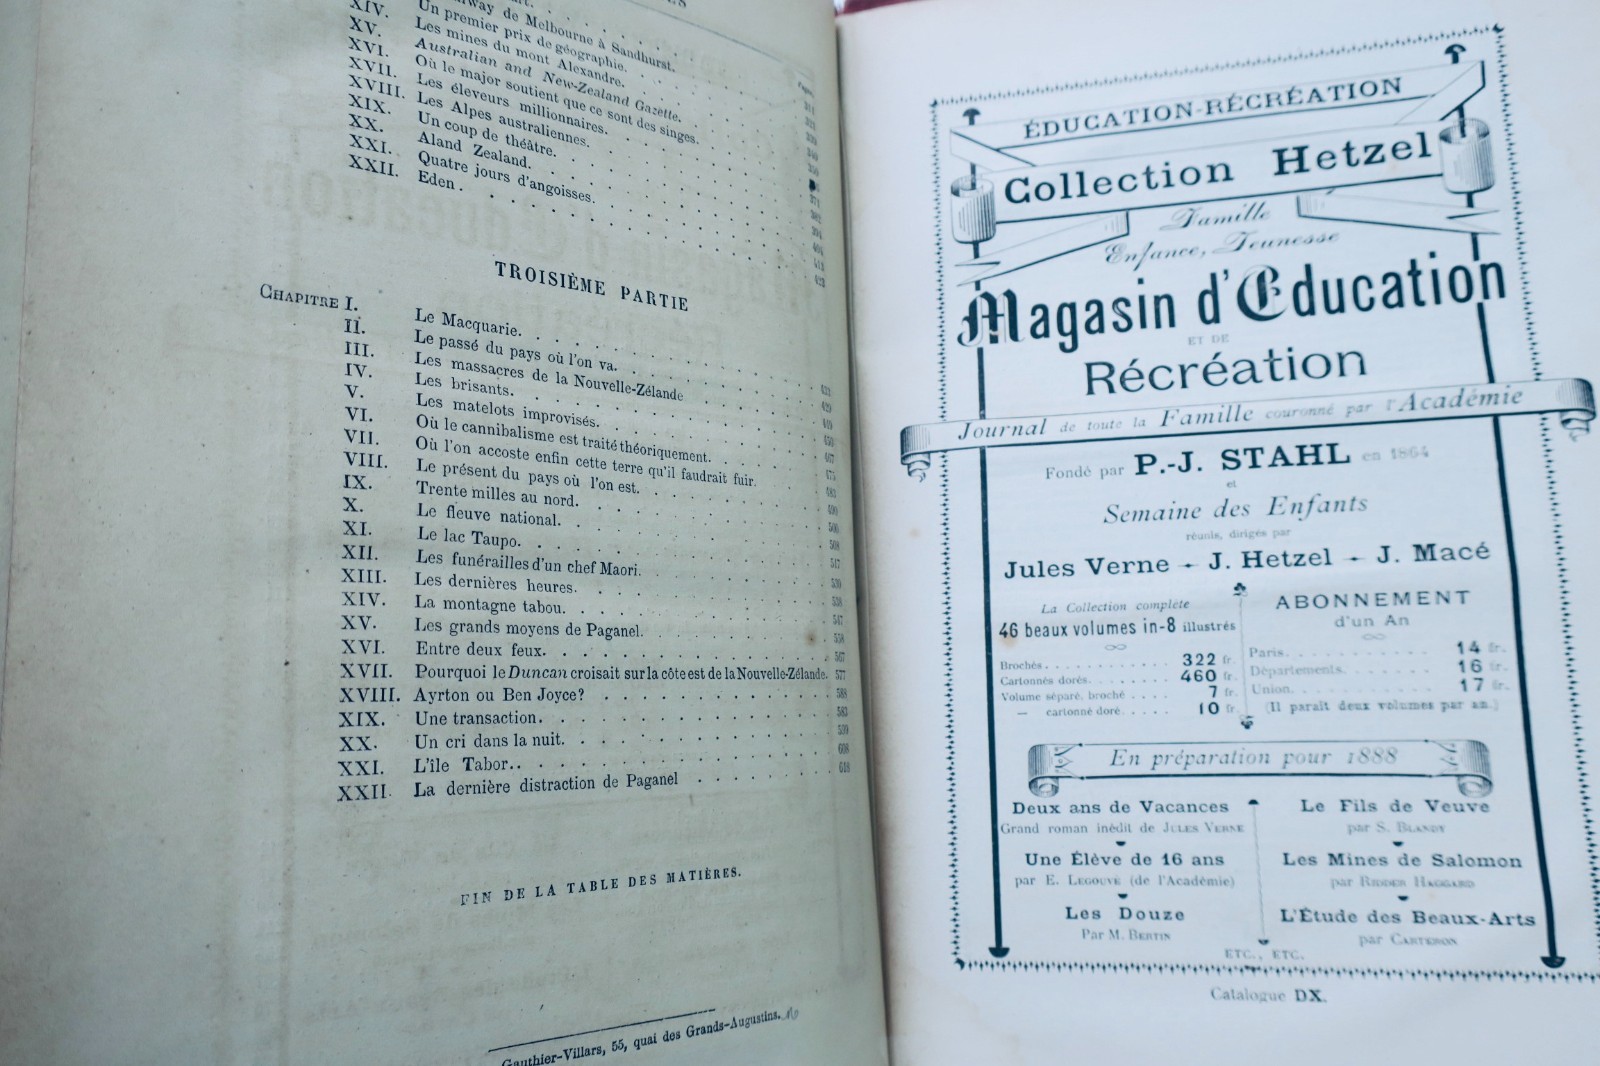 XIV. Railway de Melbourne à Sandhurst.
XV. Un premier prix de géographie.
XVI. Les mines du mont Alexandre.
XVII. Australian and New-Zealand Gazette.
XVIII. Où le major soutient que ce sont des singes.
XIX. Les éleveurs millionnaires.
XX. Les Alpes australiennes.
XXI. Un coup de théâtre.
XXII. Aland Zealand.
Quatre jours d'angoisses.
Eden
TROISIÈME PARTIE
CHAPITRE I. Le Macquarie.
II. Le passé du pays où l'on va.
III. Les massacres de la Nouvelle-Zélande
IV. Les brisants.
V. Les matelots improvisés.
VI. Où le cannibalisme est traité théoriquement.
VII. Où l'on accoste enfin cette terre qu'il faudrait fuir.
VIII. Le présent du pays où l'on est.
IX. Trente milles au nord.
X. Le fleuve national.
XI. Le lac Taupo.
XII. Les funérailles d'un chef Maori.
XIII. Les dernières heures.
XIV. La montagne tabou.
XV. Les grands moyens de Paganel.
XVI. Entre deux feux.
XVII. Pourquoi le Duncan croisait sur la côte est de la Nouvelle-Zélande. 577
XVIII. Ayrton ou Ben Joyce?
XIX. Une transaction.
XX. Un cri dans la nuit.
XXI. L'île Tabor.
XXII. La dernière distraction de Paganel
FIN DE LA TABLE DES MATIÈRES.
Gauthier-Villars, 55, quai des Grands-Augustins.
ÉDUCATION-RÉCRÉATION
Collection Hetzel
Famille
Enfance, Jeunesse
Magasin d'Education
ET DE
Récréation
Journal de toute la Famille couronné par l'Académie
Fondé par P.-J. STAHL en 1864
et
Semaine des Enfants
réunis, dirigés par
Jules Verne - J. Hetzel - J. Macé
La Collection complète
46 beaux volumes in-8 illustrés
Brochés 322 fr.
Cartonnés dorés 460 fr.
Volume séparé, broché 7 fr.
— cartonné doré 10 fr.
ABONNEMENT
d'un An
Paris 14 fr.
Départements 16 fr.
Union 17 fr.
(Il paraît deux volumes par an.)
En préparation pour 1888
Deux ans de Vacances
Grand roman inédit de JULES VERNE
Une Élève de 16 ans
par E. LEGOUVÉ (de l'Académie)
Les Douze
Par M. BERTIN
Le Fils de Veuve
par S. BLANDY
Les Mines de Salomon
par RIDDER HAGGARD
L'Étude des Beaux-Arts
par CARTERON
ETC., ETC.
Catalogue DX.